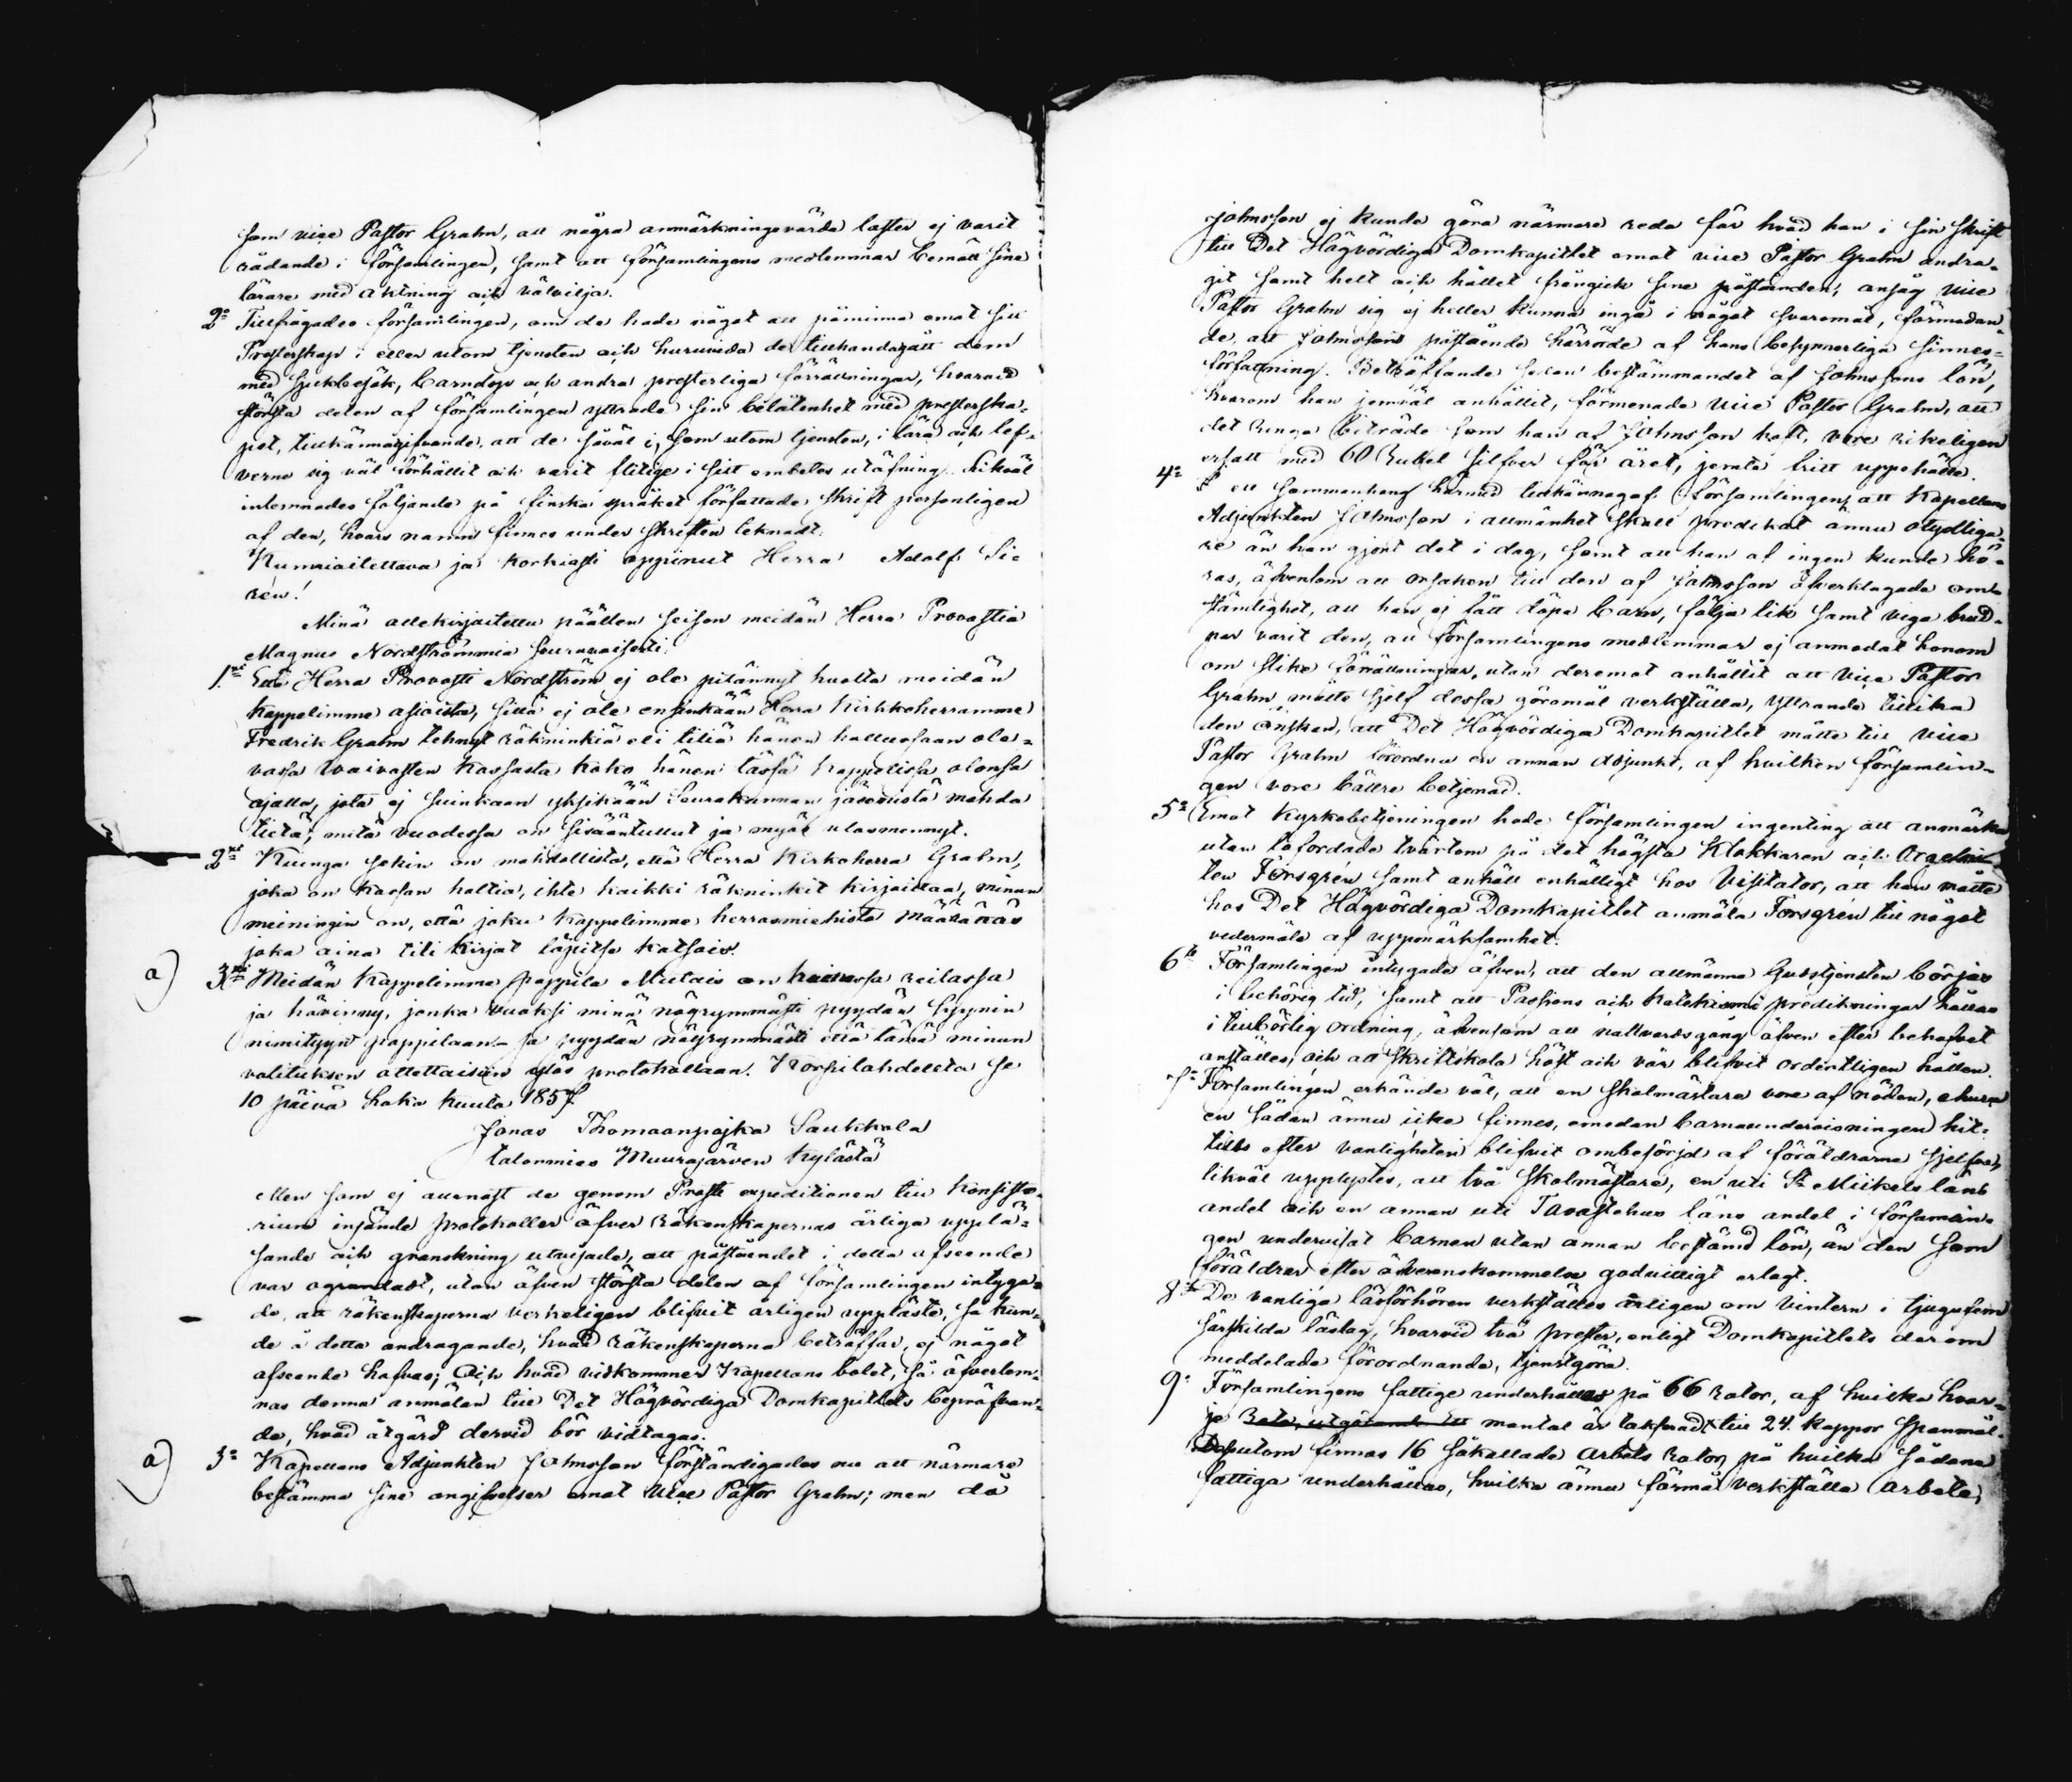 som vice Pastor Grahn, att några anmärkningsvärda laster ej varit
rådande i församlingen, samt att församlingens medlemmar bemött sine
lärare med aktning och välvilja.
2o Tillfrågades församlingen, om de hade något att påminna emot sitt
Presterskap i eller utom tjensten och huruvida de tillhandagått dem
med sjukbesök, barndop och andra presterliga förrättningar, hvarvid
största delen af församlingen yttrade sin belåtenhet med presterska-
pet, tillkännagifvande, att de såväl i, som utom tjensten, i lära och lef-
verne sig väl förhållit och varit flitige i sitt embetes utöfning. Likväl
inlemnades följande på finska språket författade skrift personligen
af den, hvars namn finnes under skriften teknadt.
Kunnioitettava ja korkiasti oppinut Herra Adolf Si-
rén!
Minä allekirjoitettu päällen seison meidän Herra Provastia
Magnus Nordströmmiä seuraavaisesti:
1.xi Että Herra Provasti Nordström ej ole pitännyt huolta meidän
kappelimme asioista, sillä ej ole ensinkään Herra Kirkkoherramme
Fredrik Grahn tehnyt räkninkiä eli tiliä hänen hallussaan ole-
vassa vaivasten kassasta koko hänen tässä kappelissa olonsa
ajalla, jota ej suinkaan yksikään Seurakunnan jäsenistä mahda
tietä, mitä vuodessa on sisääntullut ja myös ulosmennyt.
2xi Kuinga sekin on mahdollista, että Herra Kirkoherra Grahn,
joka on kassan haltia, itte kaikki räkninkit kirjoittaa, minun
meiningin on, että joku kappelimme herrasmiehistä määrättäs
joka aina tili kirjat läpitse katsois.
a) 3xi Meidän Kappelimme pappila Mutais on huonossa reilassa
ja hävinny, jonka vuoksi minä nögrymmästi pyydän Syynin
nimityyn pappilaan. Ja pyydän nögrymmästi että tämä minun
valituksen otettaisiin ylös protokollaan. Korpilahdelleta se
10 päivä loka kuuta 1857.
Jonas Thomaanpojka Saukkola
talonmies Muurajärven kylästä
Men som ej allenast de genom Prosts expeditionen till Konsisto-
rium insände protokoller öfver räkenskapernas årliga upplä-
sande och granskning utvisade, att påståendet i detta afseende
var ogrundadt, utan äfven största delen af församlingen intyga-
de, att räkenskaperna verkeligen blifvit årligen uppläste, så kun-
de å detta andragande, hvad räkenskaperna beträffar, ej något
afseende hafvas; Och hvad vidkommer Kapellans bolet, så öfverlem-
nas denna anmälan till Det Högvördiga Domkapitlets bepröfvan-
de, hvad åtgärd dervid bör vidtagas.
a) 3o Kapellans Adjunkten Johnsson förständigades nu att närmare
bestämma sine angifvelser emot Vice Pastor Grahn; men då
Johnsson ej kunde göra närmare reda för hvad han i sin skrift
till Det Högvördiga Domkapitlet emot vice Pastor Grahn andra-
git samt helt och hållet frångick sine påståenden, ansåg vice
Pastor Grahn sig ej heller kunna ingå i något svaromål, förmodan-
de, att Johnssons påstående härrörde af hans besynnerliga sinnes-
författning. Beträffande sedan bestämmandet af Johnssons lön,
hvarom han jemväl anhållit, förmenade Vice Pastor Grahn, att
det ringa biträde som han af Johnsson haft, vore rikeligen
ersatt med 60 Rubel Silfver för året, jemte fritt uppehälle.
4o I ett sammanhang härmed tillkännagaf församlingen, att Kapellans
Adjunkten Johnsson i allmänhet skall predikat ännu otydliga-
re än han gjort det i dag, samt att han af ingen kunde hö-
ras, äfvensom att orsaken till den af Johnsson öfverklagade om-
ständighet, att han ej fått döpa barn, följa lik samt viga brud-
par varit den, att Församlingens medlemmar ej anmodat honom
om slika förrättningar, utan deremot anhållit att Vice Pastor
Grahn måtte sjelf dessa göromål verkställa, yttrande tillika
den önskan, att Det Högvördiga Domkapitlet måtte till Vice
Pastor Grahn förordna en annan Adjunkt, af hvilken församlin-
gen vore bättre betjenad.
5o Emot Kyrkobetjeningen hade församlingen ingenting att anmärka
utan lofordade tvärtom på det högsta Klokkaren och Orgelnis-
ten Forsgrén samt anhöll enhälligt hos Visitator, att han måtte
hos Det Högvördiga Domkapitlet anmäla Forsgrén till något
vedermäle af uppmärksamhet.
6to Församlingen intygade äfven, att den allmänna Gudstjensten börjas
i behörig tid, samt att Passions och katekismi predikningar hållas
i tillbörlig ordning, äfvensom att nattvardsgång äfven efter behofvet
anställes, och att Skriftskola höst och vår blifvit ordentligen hållen.
7o Församlingen erkände väl, att en skolmästare vore af nöden, ehuru
en sådan ännu icke finnes, emedan barnaundervisningen hit-
tills efter vanligheten blifvit ombesörjd af föräldrarne sjelfve,
likväl upplystes, att två Skolmästare, en uti St Mickels läns
andel och en annan uti Tavastehus läns andel i församlin-
gen undervisat barnen utan annan bestämd lön, än den som
föräldrar efter öfverenskommelse godvilligt erlagt.
8to De vanliga läsförhören verkställes årligen om Vintern i tjugufem
särskilda läslag, hvarvid två prester, enligt Domkapitlets derom
meddelade förordnande, tjenstgöra.
9o Församlingens fattige underhålles på 66 rotor, af hvilka hvar-
je Rote, utgörande ett mantal är taxerad till 24 kappor Spanmål.
Dessutom finnas 16 såkallade Arbets Rotor, på hvilka sådana
fattiga underhållas, hvilka ännu förmå verkställa arbete,